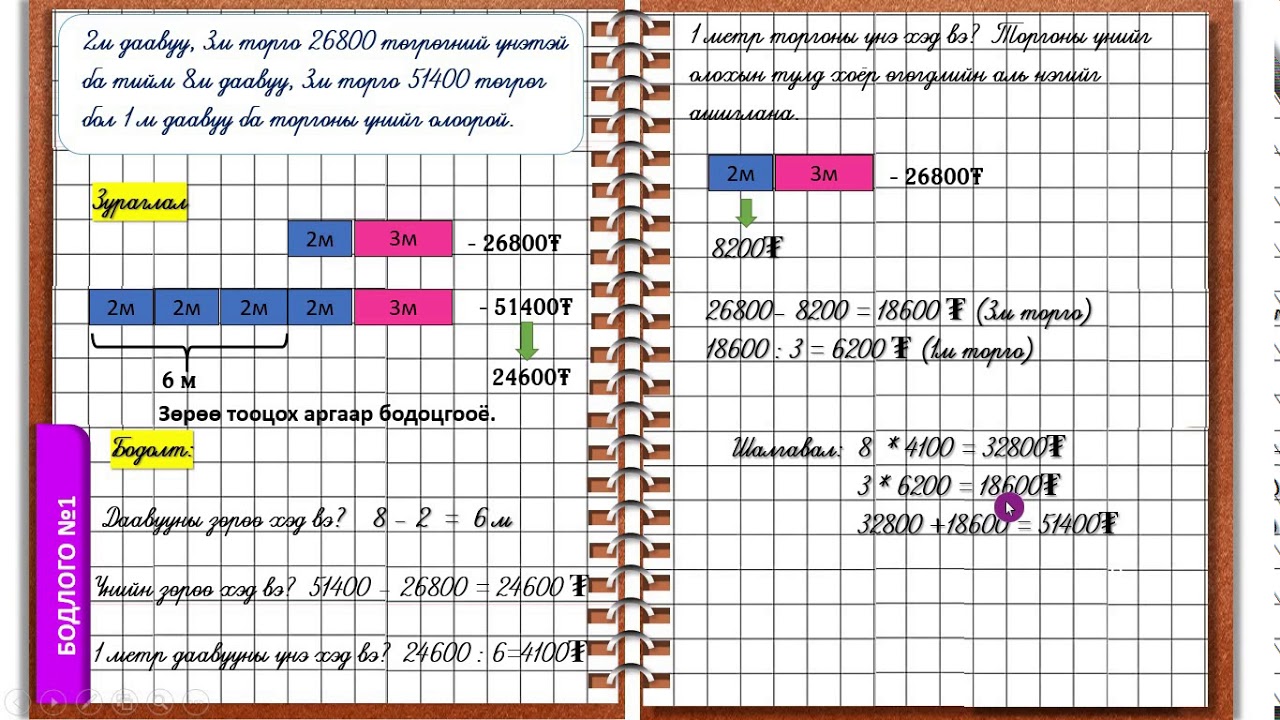 2м даавуу, 3м торго 26800 төгрөгний үнэтэй
ба тийм 8м даавуу, 3м торго 51400 төгрөг
бол 1 м даавуу ба торгоны үнийг олоорой.
Зураглал
2м 3м - 26800₮
2м 2м 2м 2м 3м - 51400₮
6 м
24600₮
Зөрөө тооцох аргаар бодоцгооё.
Бодолт:
Даавууны зөрөө хэд вэ? 8 - 2 = 6м
Үнийн зөрөө хэд вэ? 51400 - 26800 = 24600 ₮
1 метр даавууны үнэ хэд вэ? 24600 : 6=4100₮
БОДЛОГО №1
1 метр торгоны үнэ хэд вэ? Торгоны үнийг
олохын тулд хоёр өгөгдлийн аль нэгийг
ашиглана.
2м 3м - 26800₮
8200₮
26800- 8200 = 18600 ₮ (3м торго)
18600 : 3 = 6200 ₮ (1м торго)
Шалгавал: 8 * 4100 = 32800₮
3 * 6200 = 18600₮
32800 +18600 = 51400₮